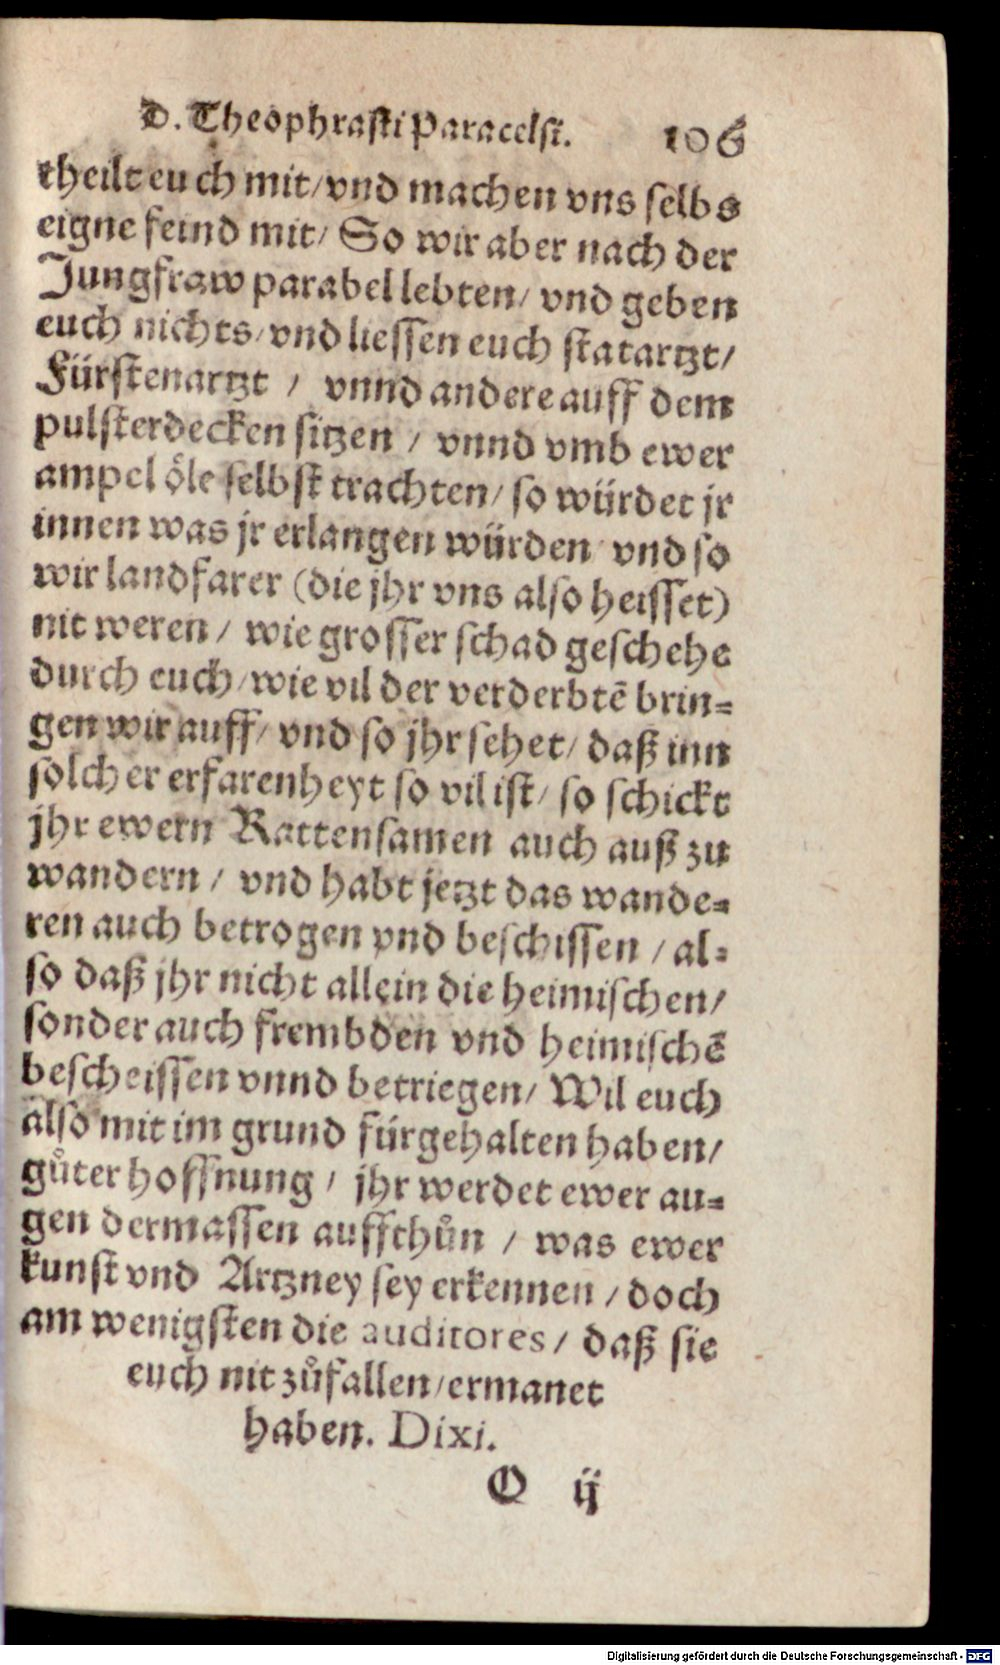 D. Theophrasti Paracelsi. 106
theilt euch mit/ vnd machen vns selbs
eigne feind mit/ So wir aber nach der
Jungfraw parabel lebten/ vnd geben
euch nichts/ vnd liessen euch statartzt/
Fürstenartzt / vnnd andere auff dem
pulsterdecken sitzen / vnnd vmb ewer
ampel öle selbst trachten/ so würdet jr
innen was jr erlangen würden/ vnd so
wir landfarer (die jhr vns also heisset)
nit weren / wie grosser schad geschehe
durch euch/ wie vil der verderbtẽ brin-
gen wir auff/ vnd so jhr sehet/ daß inn
solcher erfarenheyt so vil ist/ so schickt
jhr ewern Rattensamen auch auß zu
wandern / vnd habt jetzt das wande-
ren auch betrogen vnd beschissen / al-
so daß jhr nicht allein die heimischen/
sonder auch frembden vnd heimischẽ
bescheissen vnnd betriegen/ Wil euch
also mit im grund fürgehalten haben/
gůter hoffnung / jhr werdet ewer au-
gen dermassen auffthůn / was ewer
kunst vnd Artzney sey erkennen / doch
am wenigsten die auditores/ daß sie
euch nit zůfallen/ ermanet
haben. Dixi.
O ij
Digitalisierung gefördert durch die Deutsche Forschungsgemeinschaft - DFG